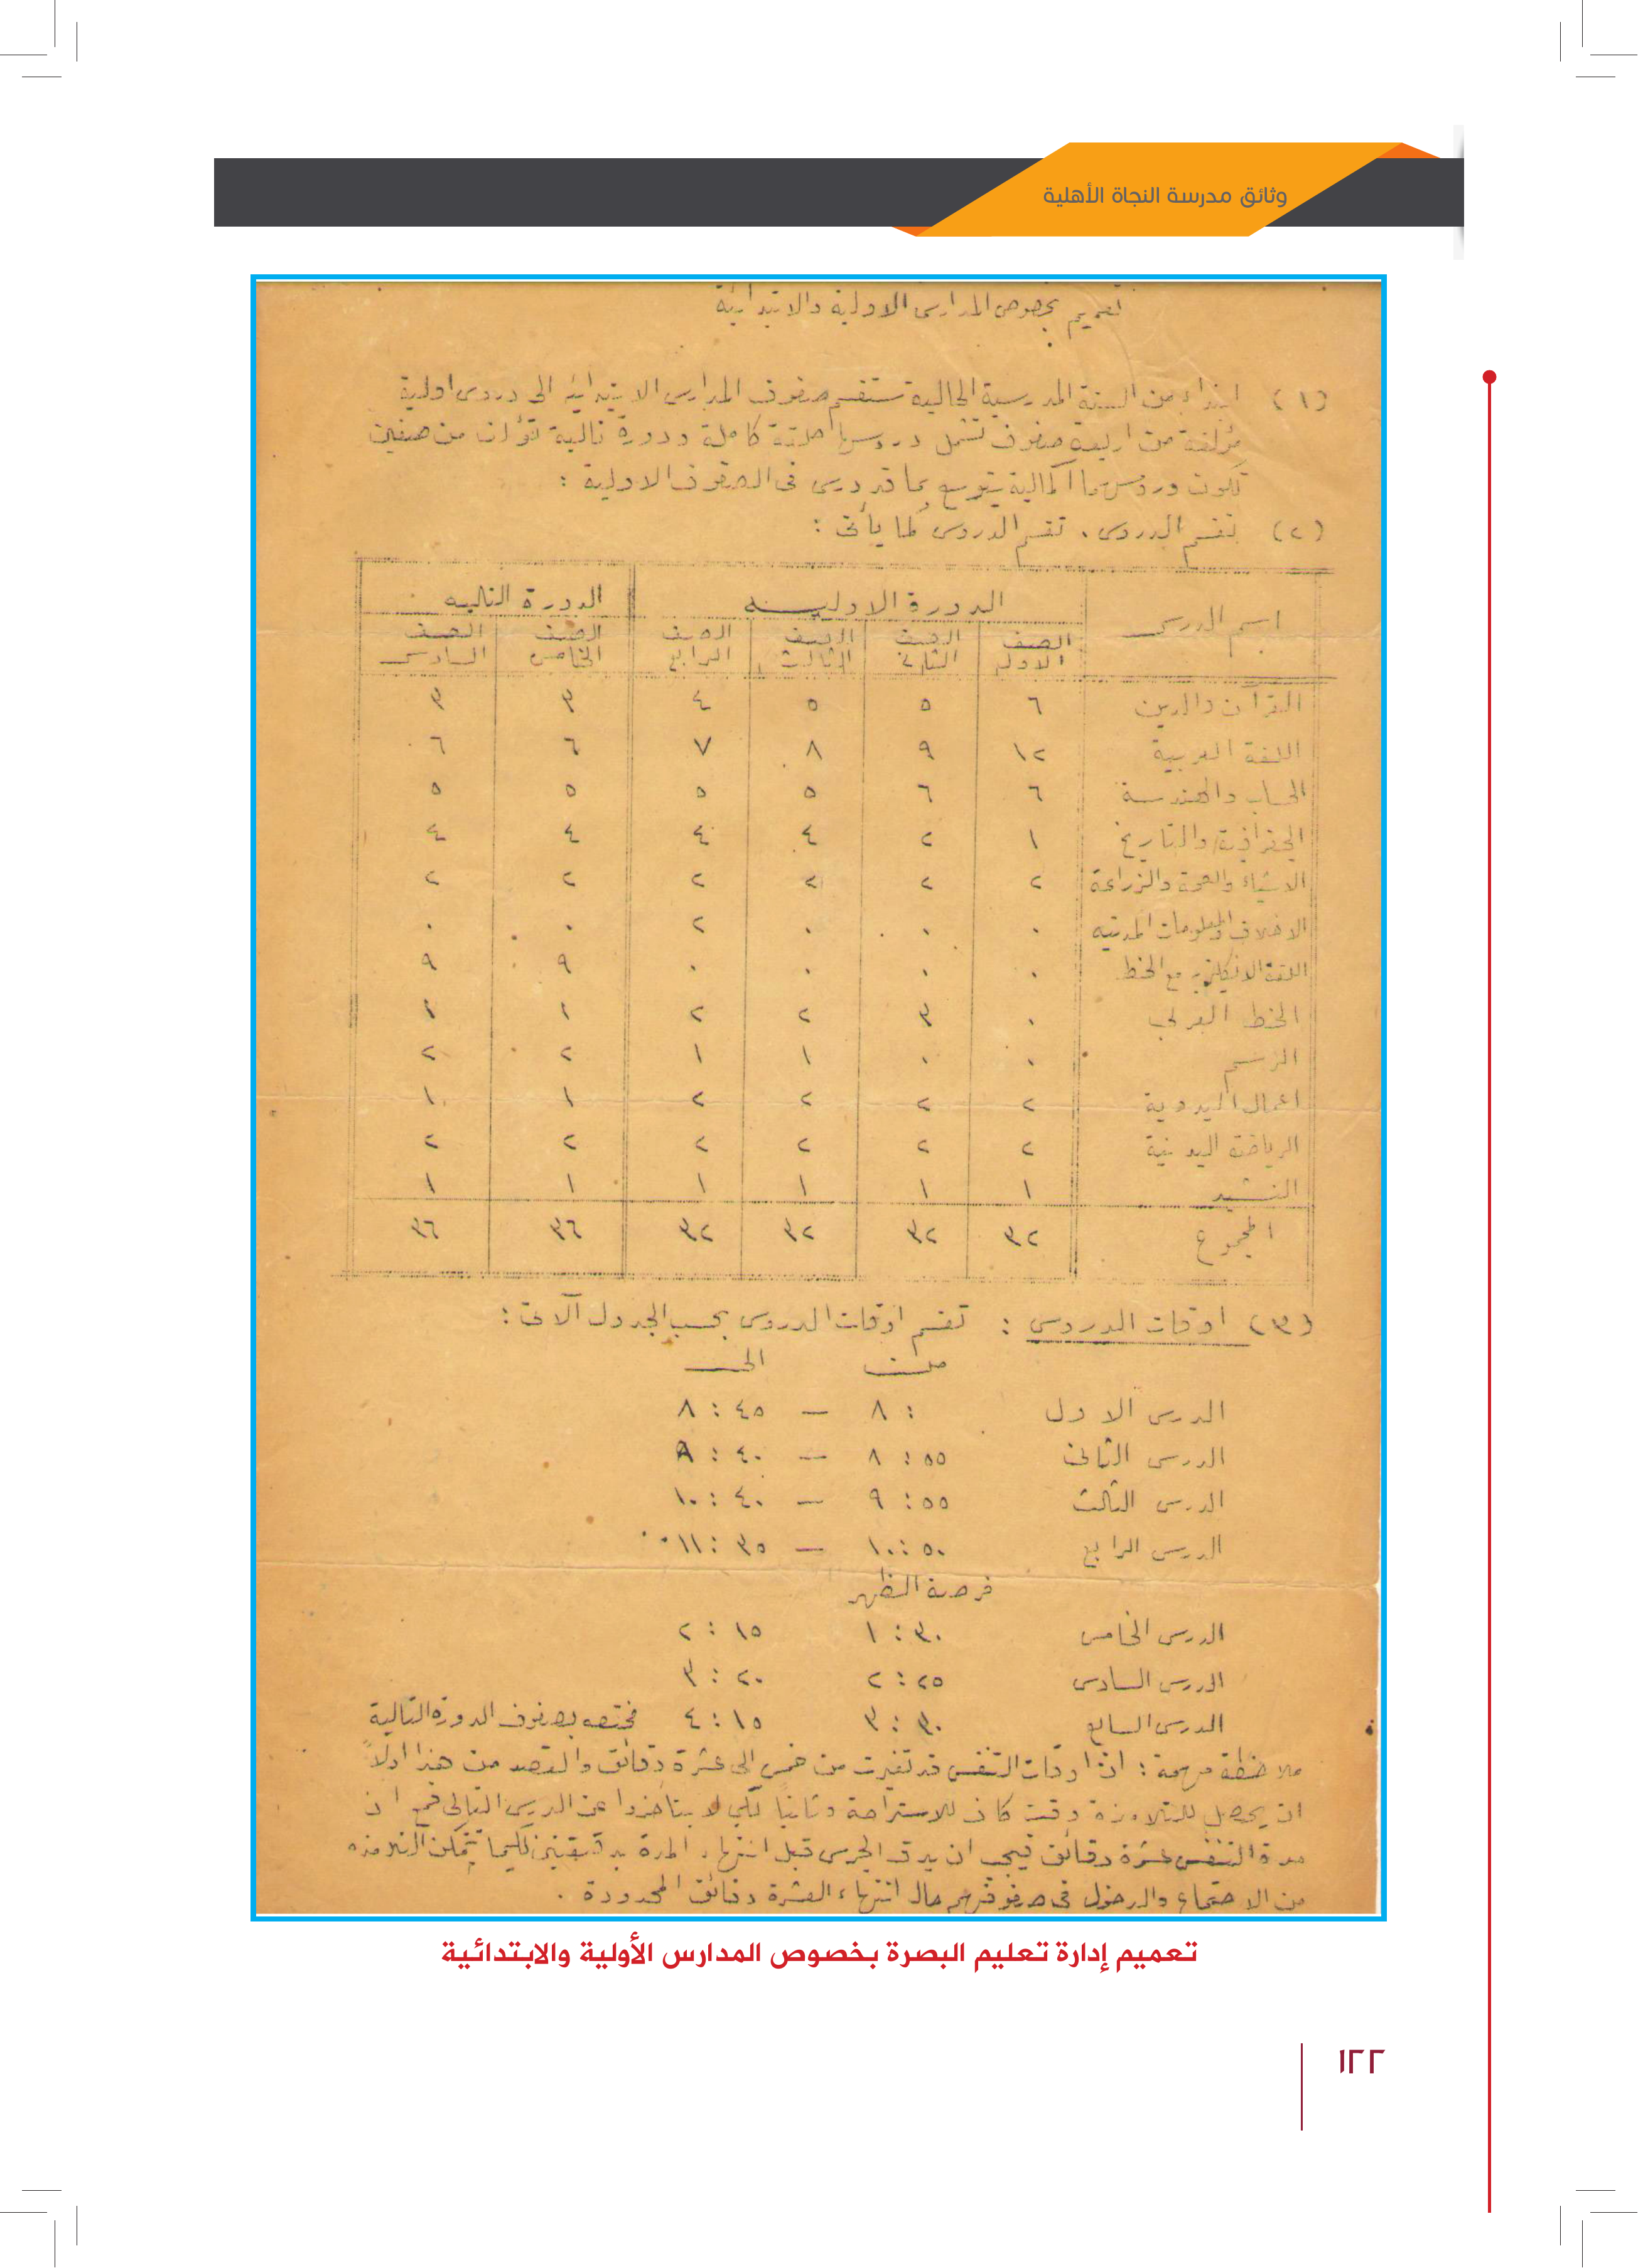 وثائق مدرسة النجاة الأهلية
تعميم بخصوص المدارس الاولية والابتدائية
(١) ابتداء من السنة المدرسية الحالية ستقسم صفوف المدارس الابتدائية الى دروس اولية
مؤلفة من اربعة صفوف تشمل دروسها كاملة ودورة تالية تؤلف من صفين
تكون دروسهما اكمالية يتوسع بما قد درس فى الصفوف الاولية :
(٢) تقسيم الدروس . تقسم الدروس كما يأتى :
اسم الدرس الدورة الاوليه الدورة التاليه
الصف الاول الصف الثانى الصف الثالث الصف الرابع الصف الخامس الصف السادس
القرآن والدين ٦ ٥ ٥ ٤ ٣ ٣
اللغة العربية ١٢ ٩ ٨ ٧ ٦ ٦
الحساب والهندسة ٦ ٦ ٥ ٥ ٥ ٥
الجغرافية والتاريخ ١ ٢ ٤ ٤ ٤ ٤
الاشياء والصحة والزراعة ٢ ٢ ٢ ٢ ٢ ٢
الاخلاق والمعلومات المدنيه ٠ ٠ ٠ ٢ ٠ ٠
اللغة الانكليزيه مع الخط ٠ ٠ ٠ ٠ ٩ ٩
الخط العربي ٠ ٣ ٢ ٢ ١ ١
الرسم ٠ ٠ ١ ١ ٢ ٢
اعمال اليدوية ٢ ٢ ٢ ٢ ١ ١
الرياضة البدنية ٢ ٢ ٢ ٢ ٢ ٢
النشيد ١ ١ ١ ١ ١ ١
المجموع ٣٢ ٣٢ ٣٢ ٣٢ ٣٦ ٣٦
(٣) اوقات الدروس : تقسم اوقات الدروس بحسب الجدول الآتى :
من الى
الدرس الاول ٨ : — ٨ : ٤٥
الدرس الثانى ٨ : ٥٥ — ٩ : ٤٠
الدرس الثالث ٩ : ٥٥ — ١٠ : ٤٠
الدرس الرابع ١٠ : ٥٠ — ١١ : ٣٥
فرصة الظهر
الدرس الخامس ١ : ٣٠ ٢ : ١٥
الدرس السادس ٢ : ٢٥ ٣ : ٢٠
الدرس السابع ٣ : ٣٠ ٤ : ١٥ مختصه بصفوف الدورة التالية
ملاحظة مهمة : ان اوقات التنفس قد تغيرت من خمس الى عشرة دقائق والقصد من هذا اولاً
ان يحصل للتلامذة وقت كاف للاستراحة وثانيا لكي لا يتأخذوا عن الدرس التالى فمع ان
مدة التنفس عشرة دقائق فيجب ان يدق الجرس قبل انتهاء المدة بدقيقتين لكيما تتمكن التلامذه
من الاجتماع والدخول فى صفوفهم حال انتهاء العشرة دقائق المحدودة .
تعميم إدارة تعليم البصرة بخصوص المدارس الأولية والابتدائية
١٢٢